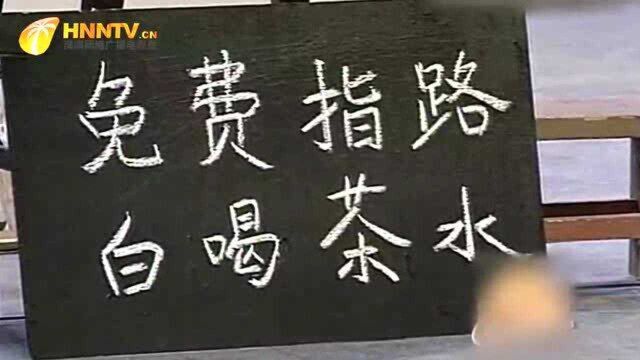 HNNTV.CN
免费指路
白喝茶水